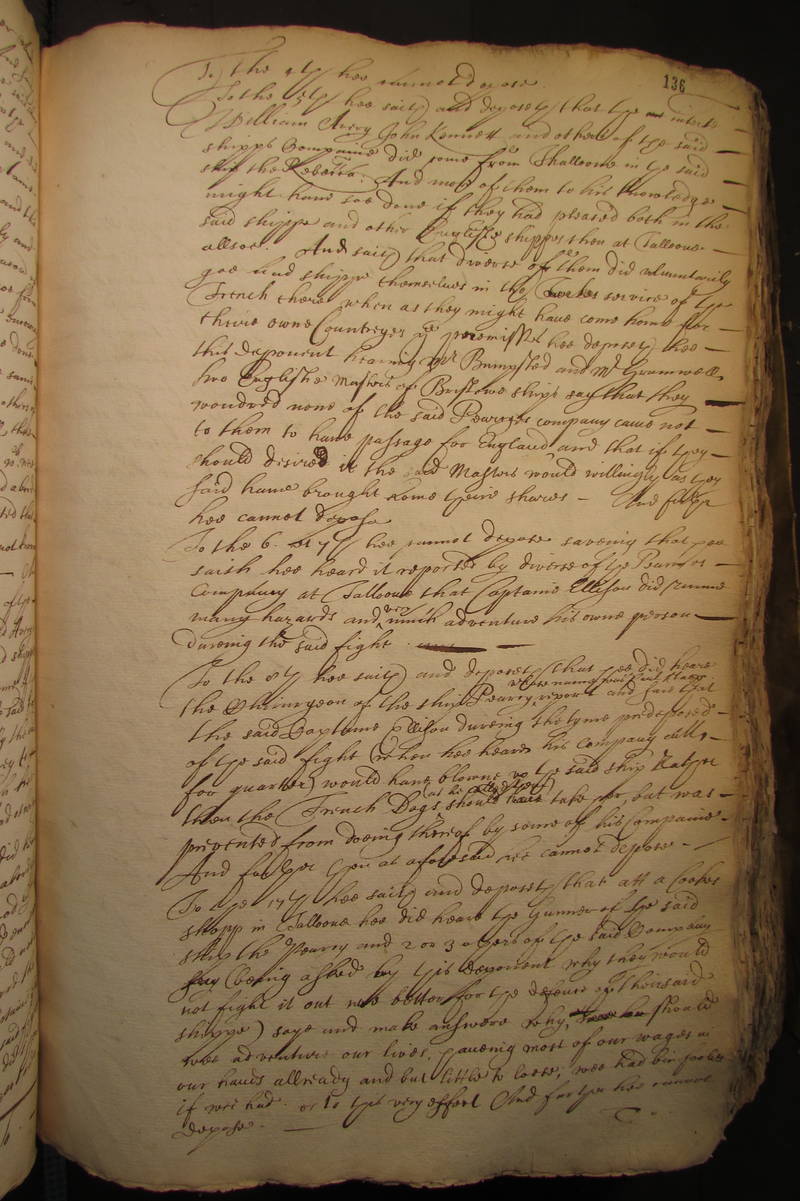 136
To the 4th hee cannot depose.
To the 5th hee saith and deposeth that the interte
William Avery John Kennett and others of the said
shipps Companie did come from Thalloone in the said
ship the Rebecca. And most of them to his knowledge
might have soe done if they had pleased both in the
said shippe and other Englishe shippes then at Talloone
allsoe And saith that diverse of them did voluntarily
goe and shippe themselves in the service of the
French there when as they might have come home for
theire owne Countreyes the premisses hee deposeth hee
this deponent hearing Mr Bumpsted and Mr Grumwell
two Englishe Masters of Bristowe ships say that they
wondred none of the said Pearryes company came not
to them to have passage for England and that if they
should desired it the said Masters would willingly as they
said have brought home theire shares And further
hee cannot depose
To the 6. et 7th hee cannot depose saveing that hee
saith hee heard it reported by diverse of the Pearryes
Company at Talloone that Captaine Ellison did runne
many hazards and very much adventure his owne person
dureing the said fight
To the 8th hee saith and deposeth that hee did heare
the Chirurgeon of the ship Pearry whose name report and saie that
the said Captaine Ellison dureing the tyme predeposed
of the said fight (when hee heard his company call
for quarter) would have blowne up the said ship rather
then the French Dogs (as he called them) should have take her but was
prevented from doeing thereof by some of his Companie
And further then as aforesaid hee cannot depose
To the 17th hee saith and deposeth that att a Cookes
shopp in Talloone hee did heare the Gunner of the said
ship the Pearry and 2 or 3 others of the said Company
say (being asked by this deponent why they would
not fight it out no better for the defence of the said
shippe) saye and make answere why, should
wee adventure our lives, haveing most of our wages in
our hands allready and but little to loose, wee had bin fooles
if wee had. or to the very effect And further hee cannot
depose.